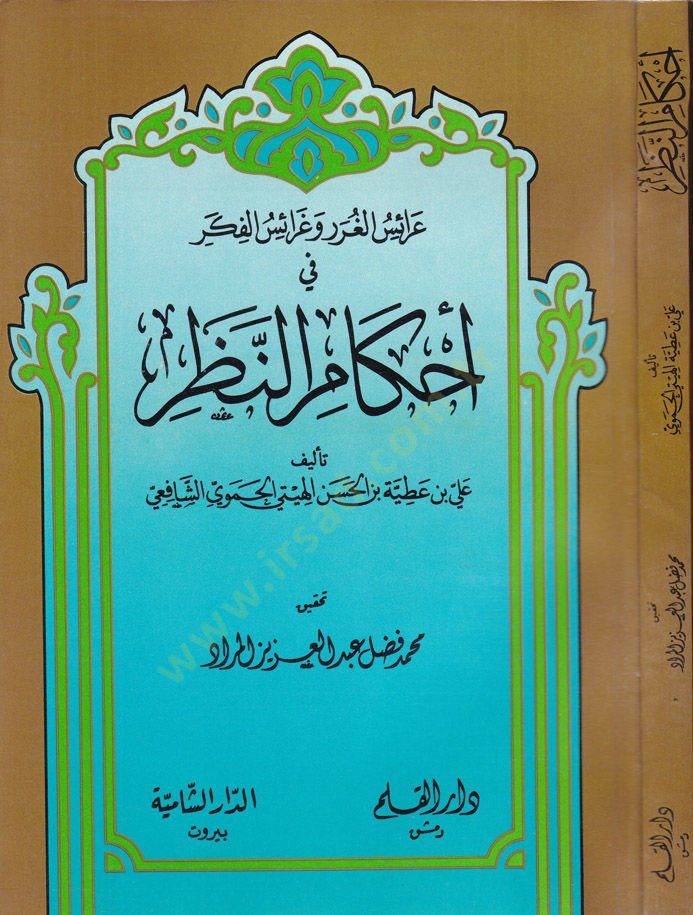 عَرائسُ الغُرَر وَغَرائسُ الفِكَرِ
في
أحكامِ النَّظَرِ
تأليف
عَليّ بن عَطيّة بن الحَسَن الهِيتي الحَمَويّ الشَّافِعيّ
تحقيق
محمد فضل عبد العزيز المراد
دار القلم
دمشق
الدّار الشّاميّة
بيروت
أحكام النَّظَرِ
تأليف
علي بن عطية الهيتي الحموي
تحقيق
محمد فضل عبد العزيز المراد
دار القلم
دمشق
www.irsad.com.tr